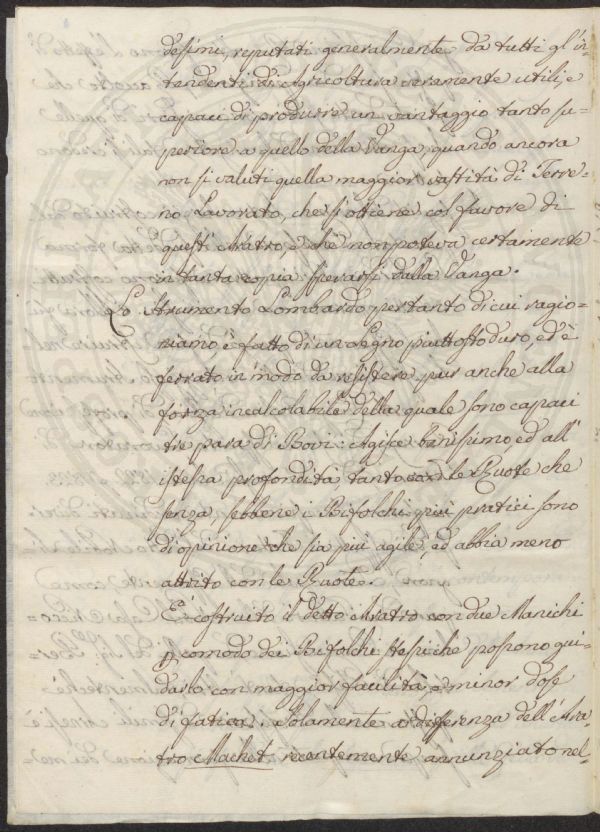 desimi, reputati generalmente da tutti gl'in=
tendenti di Agricoltura veramente utili, e
capaci di produrre un vantaggio tanto su=
periore a quello della Vanga, quando ancora
non si valuti quella maggior vastità di Terre=
no Lavorato, che si ottiene col favore di
questi Aratro, e che non poteva certamente
in tanta copia sperarsi dalla Vanga.
Lo Strumento Lombardo pertanto di cui ragio=
niamo è fatto di un Legno piuttosto duro, ed è
ferrato in modo da resistere pur anche alla
forza incalcolabile della quale sono capaci
tre para di Bovi: Agisce benissimo, ed all'
istessa profondità tanto con le Ruote che
senza, sebbene i Bifolchi più pratici sono
di opinione che sia più agile, ed abbia meno
attrito con le Ruote.
E' costruito il detto Aratro con due Manichi
p comodo dei Bifolchi stessi che possono gui=
darlo con maggior facilità e minor dose
di fatica. Solamente a differenza dell'Ara=
tro Machet recentemente annunziato nel=